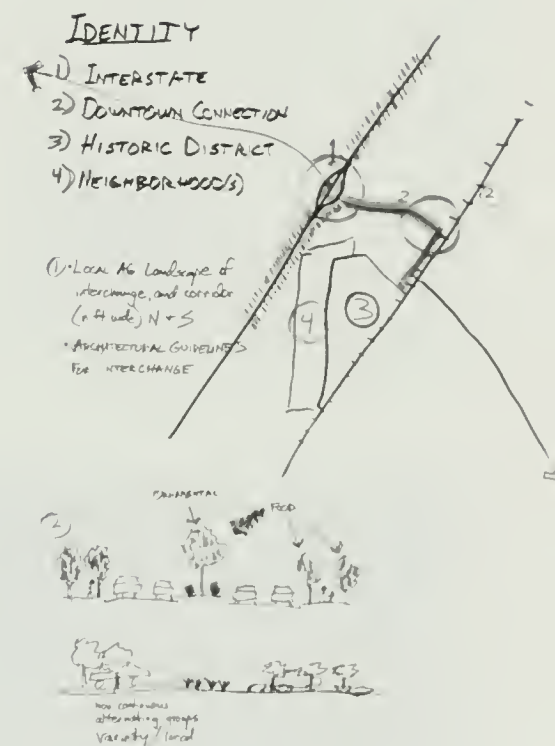 IDENTITY
1) INTERSTATE
2) DOWNTOWN CONNECTION
3) HISTORIC DISTRICT
4) NEIGHBORHOOD(S)
1
2
12
3
4
(1) • LOCAL AG LANDSCAPE OF
interchange, and corridor
(n ft wide) N + S
• ARCHITECTURAL GUIDELINES
FOR INTERCHANGE
(2)
ORNAMENTAL
FOOD
non continuous
alternating groups
variety / local